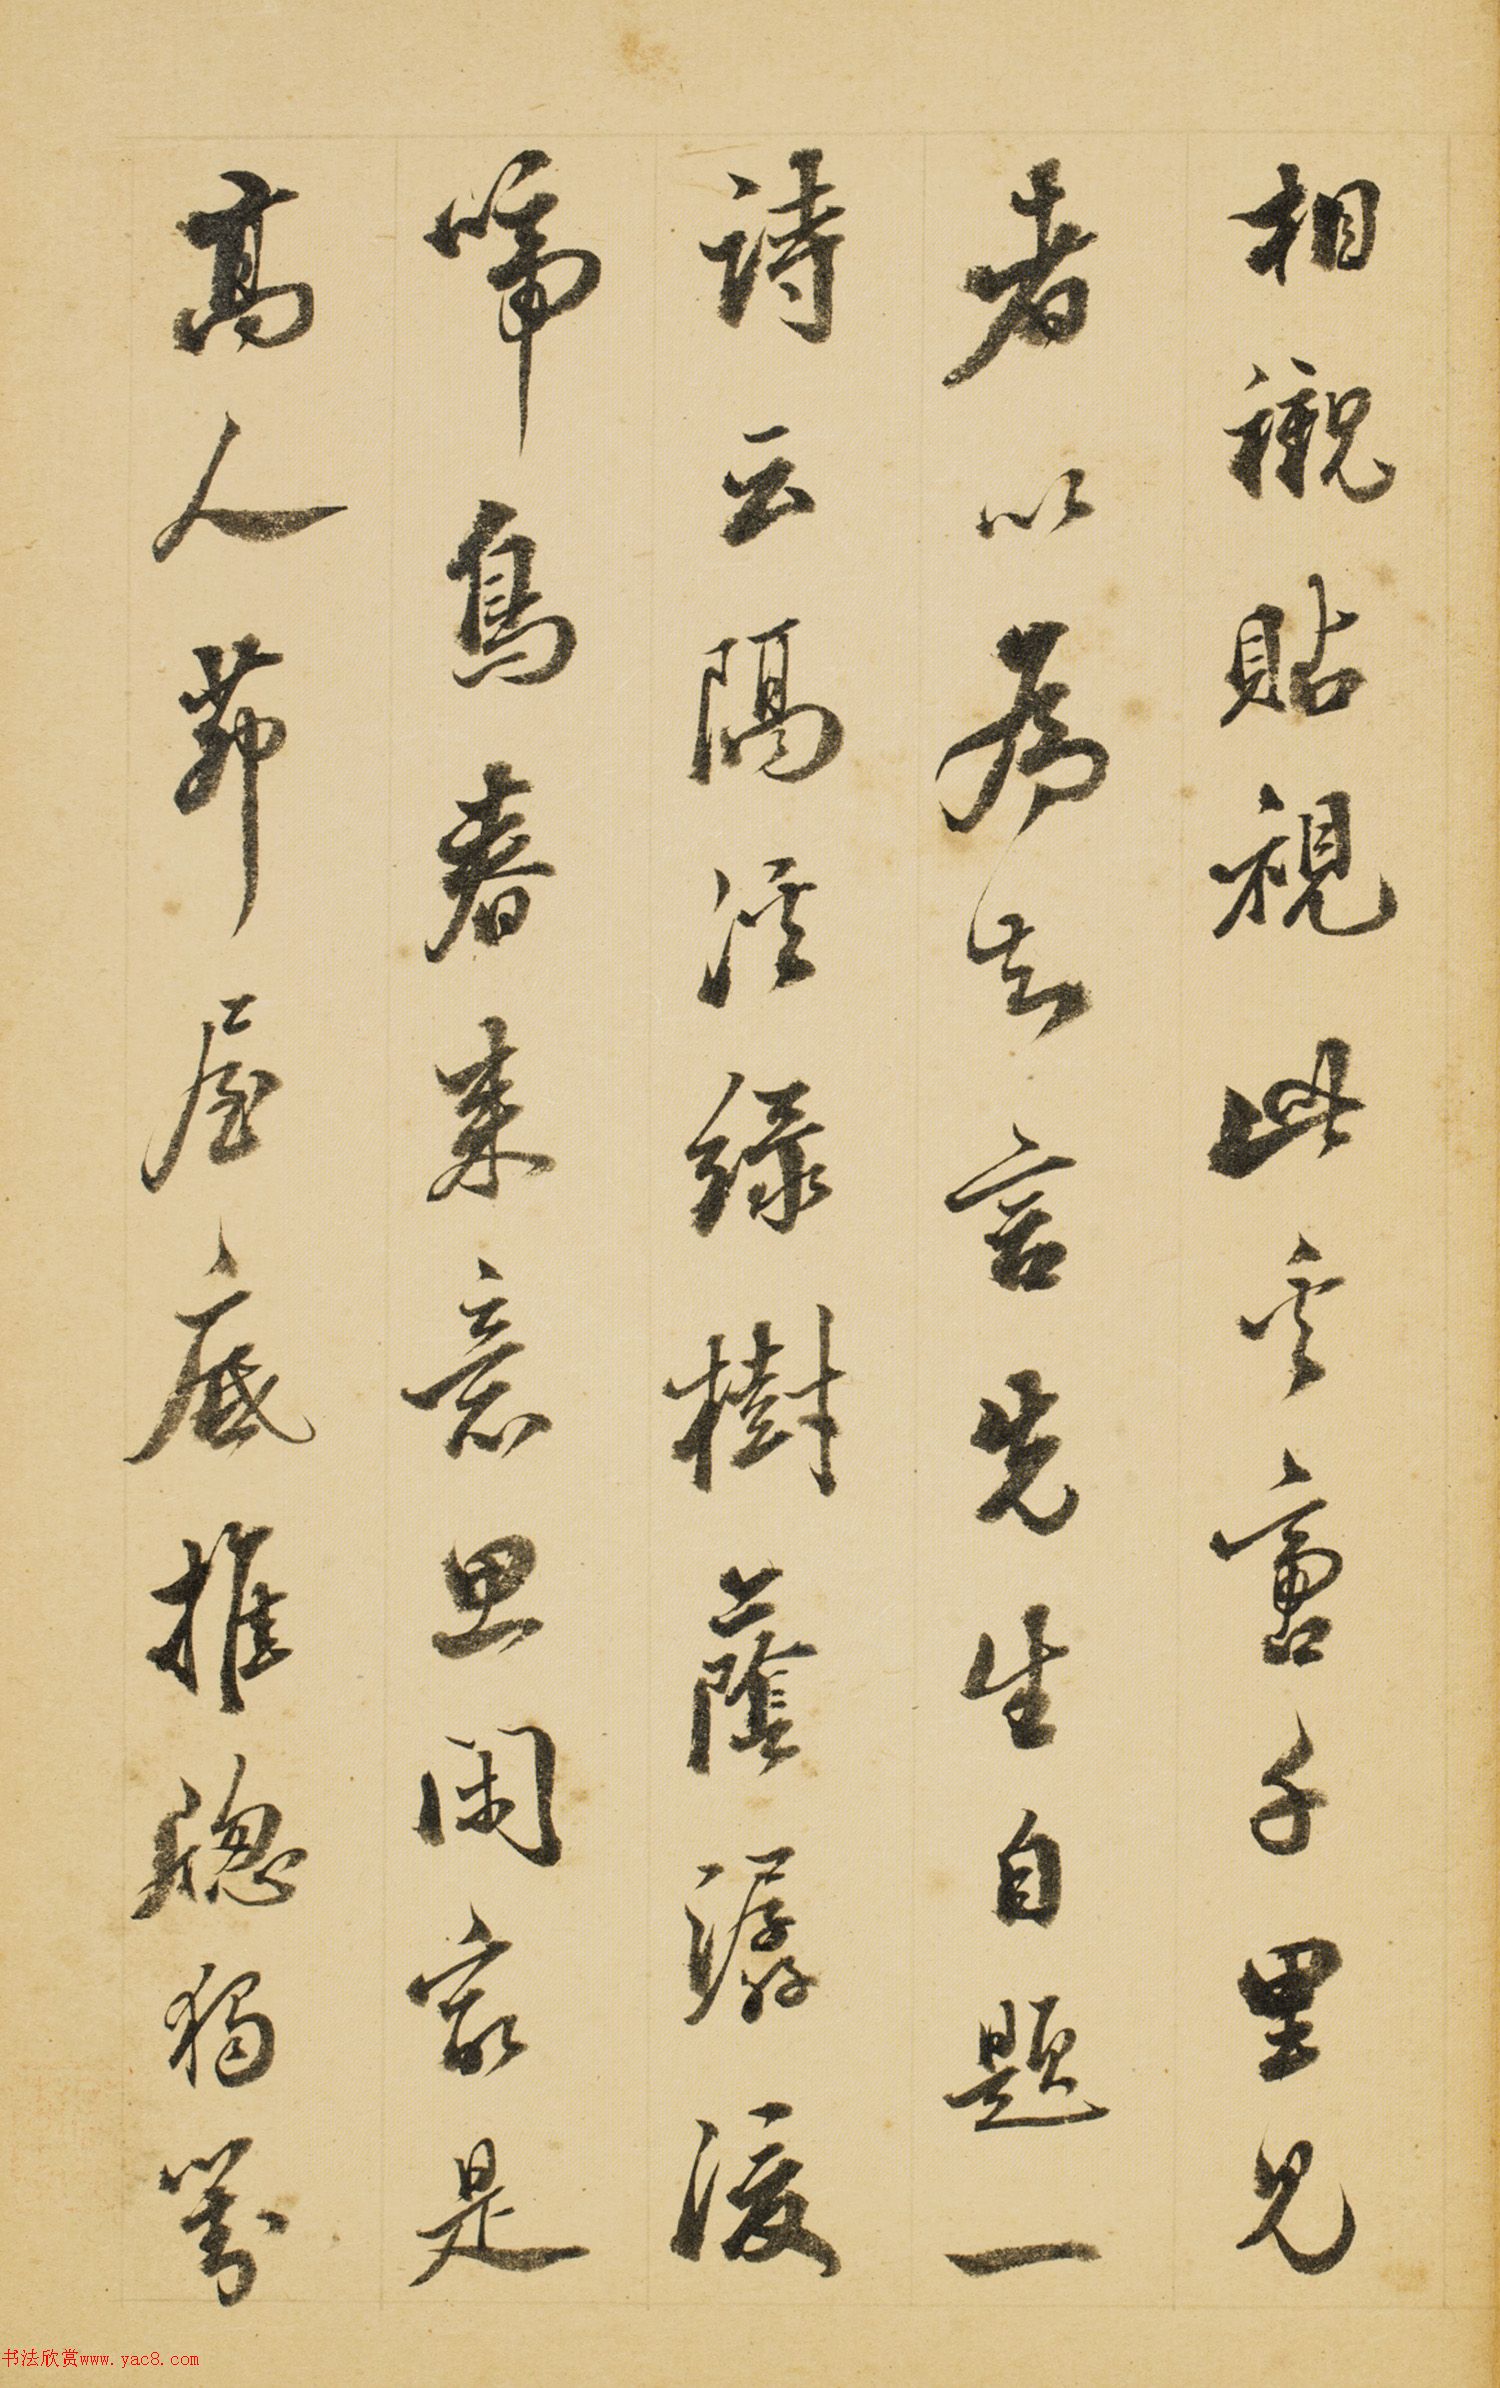 相襯貼視此奚啻千里見
者以為知言先生自題一
詩云隔溪綠樹蔭潺湲
啼鳥春來意思閑最是
高人茆屋底推牕獨對
书法欣赏www.yac8.com